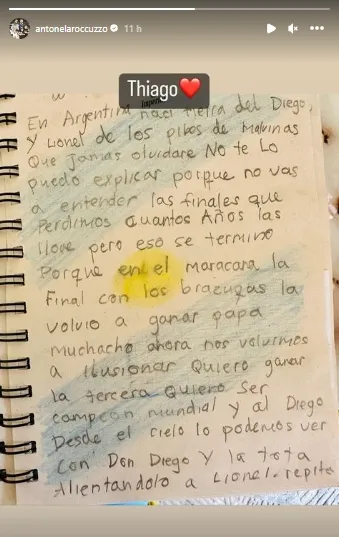 antonelaroccuzzo 11 h
Thiago
En Argentina naci tierra del Diego,
Y Lionel de los pibes de Malvinas
Que Jamas olvidare No te Lo
puedo explicar porque no vas
a entender las finales que
Perdimos cuantos Años las
llore pero eso se termino
Porque en el maracana la
final con los brazugas la
volvio a ganar papa
muchacho ahora nos volvimos
a ilusionar Quiero ganar
la tercera Quiero Ser
campeon mundial y al Diego
Desde el cielo lo podemos ver
con Don Diego Y la tota
Alientandolo a Lionel. repite